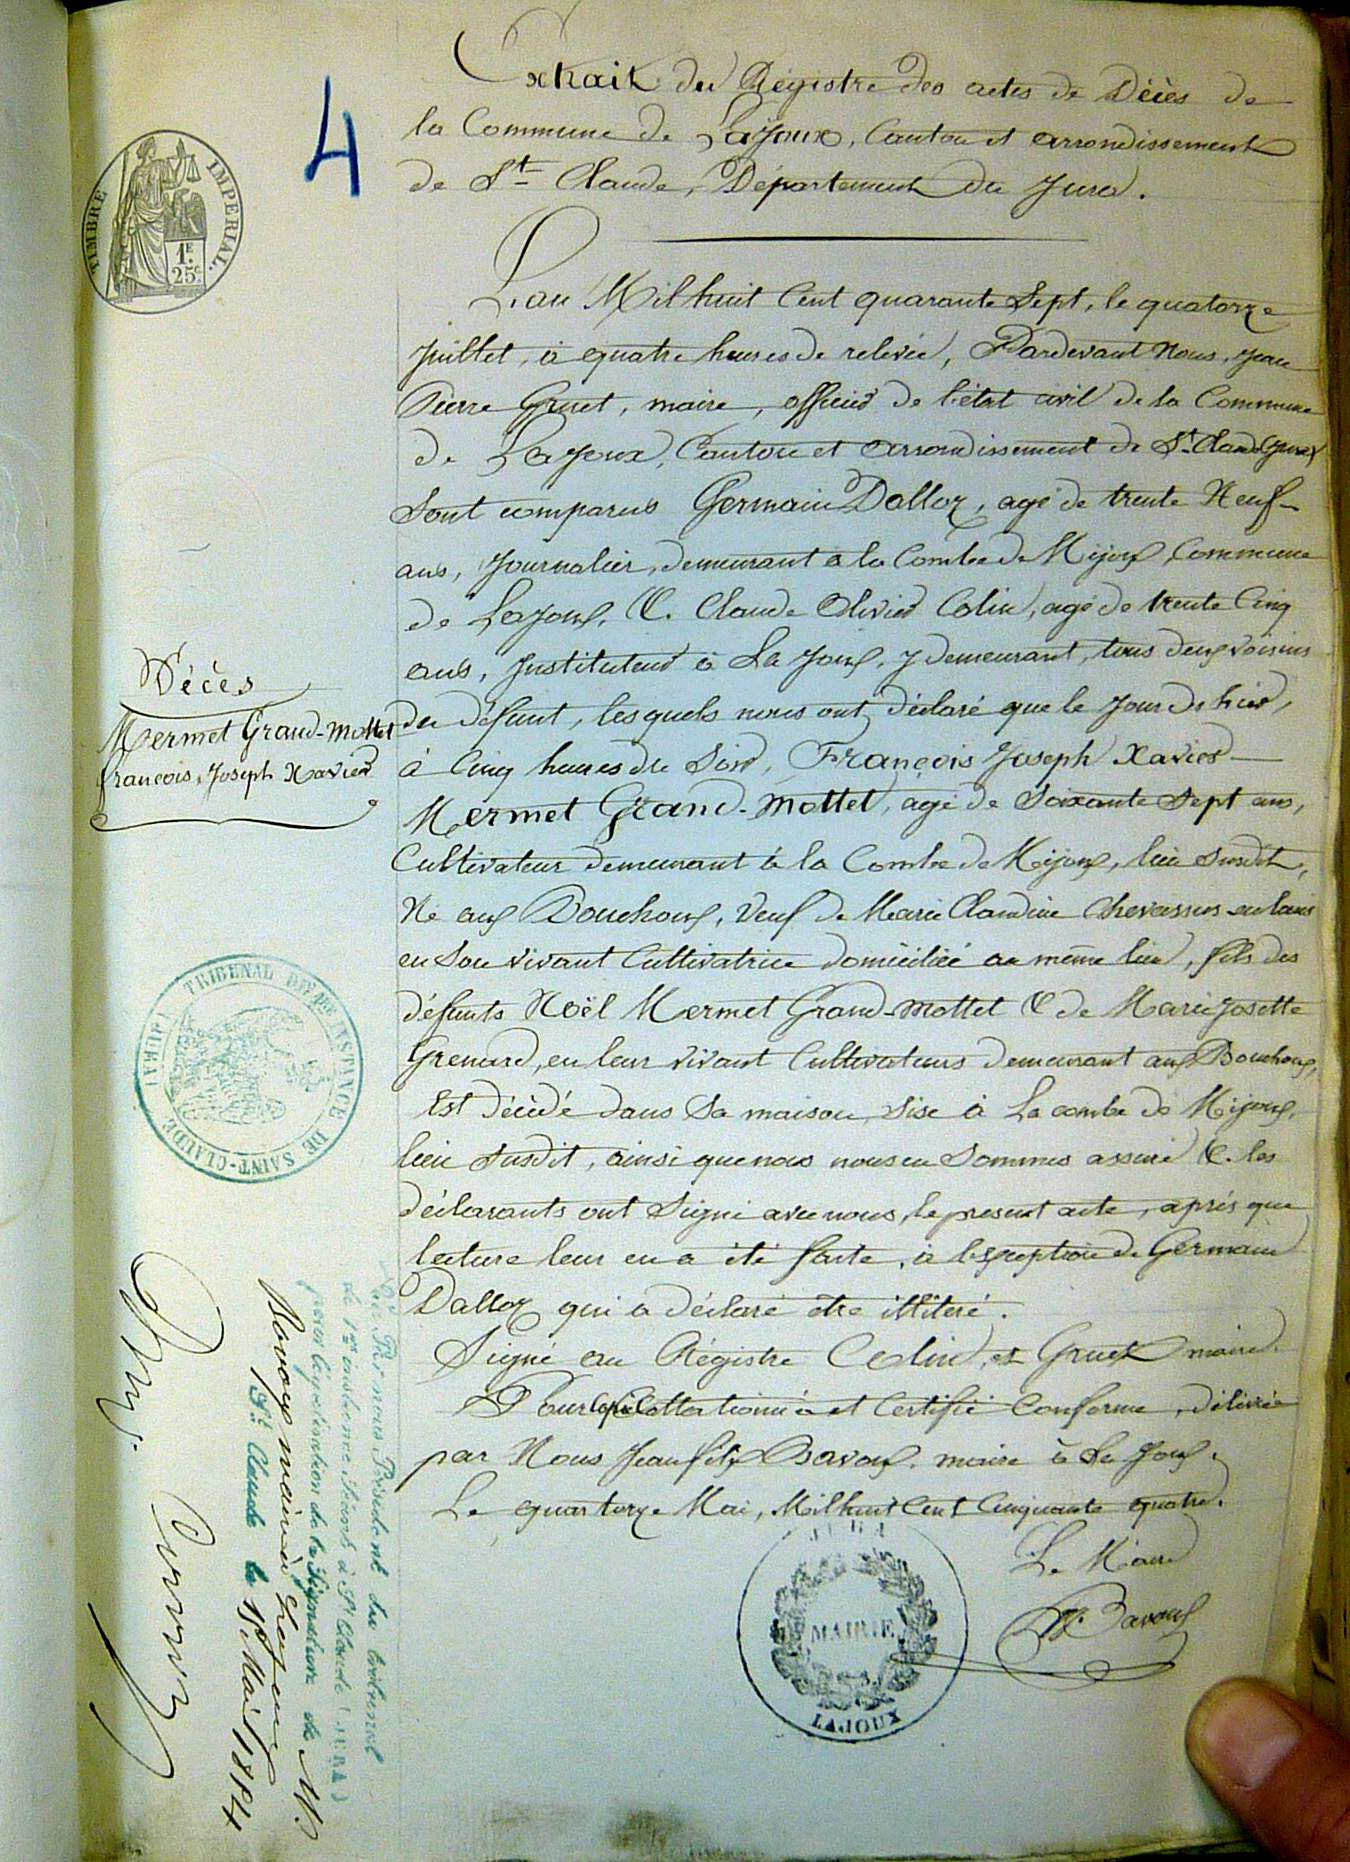 4
Extrait du Régistre des actes de Décès de
la Commune de Lajoux, Canton et arrondissement
de St Claude, Département du Jura.
TIMBRE IMPERIAL.
1F.
25c.
L'an Mil huit Cent quarante Sept, le quatorze
Juillet, à quatre heures de relevée, Pardevant Nous, Jean
Pierre Gruet, maire, officier de l'état civil de la Commune
de Lajoux, Canton et arrondissement de St Claude (Jura)
Sont comparus Germain Dalloz, agé de trente Neuf
ans, Journalier, demeurant à la Combe de Mijoux, Commune
de Lajoux, & Claude Olivier Colin, agé de trente Cinq
ans, Instituteur à La Joux, y demeurant, tous deux voisins
du défunt, lesquels nous ont déclaré que le Jour d'hier,
à Cinq heures du Soir, François Joseph Xavier
Mermet Grand-Mottet, agé de Soixante Sept ans,
Cultivateur demeurant à la Combe de Mijoux, lieu susdit,
Né aux Bouchoux, Veuf de Marie Claudine Chevassus-au-louis
en Son vivant Cultivatrice domiciliée au même lieu, fils des
défunts Noël Mermet Grand-Mottet & de Marie Josette
Grenard, en leur vivant Cultivateurs demeurant aux Bouchoux,
Est décédé dans Sa maison, Sise à La combe de Mijoux,
lieu susdit, ainsi que nous nous en Sommes assuré &. les
déclarants ont Signé avec nous, le present acte, après que
lecture leur en a été faite, à l'exception de Germain
Dalloz qui a déclaré être illiteré.
Signé au Régistre Colin, et Gruet maire.
Pour Copie Collationnée et Certifié Conforme, délivrée
par Nous Jean félix Bavoux, maire à La Joux.
Le quartorze Mai, Mil huit Cent Cinquante quatre.
Le Maire
Bavoux
JURA
MAIRIE
LAJOUX
Décès
Mermet Grand-Mottet
francois, Joseph Xavier
TRIBUNAL DE 1ère INSTANCE DE SAINT-CLAUDE (JURA)
Vu Par nous Président du tribunal
de 1ère instance Séant à St Claude (JURA)
pour légalisation de la Signature de M.
Bavoux maire à Lajoux
St Claude le 15 Mai 1854